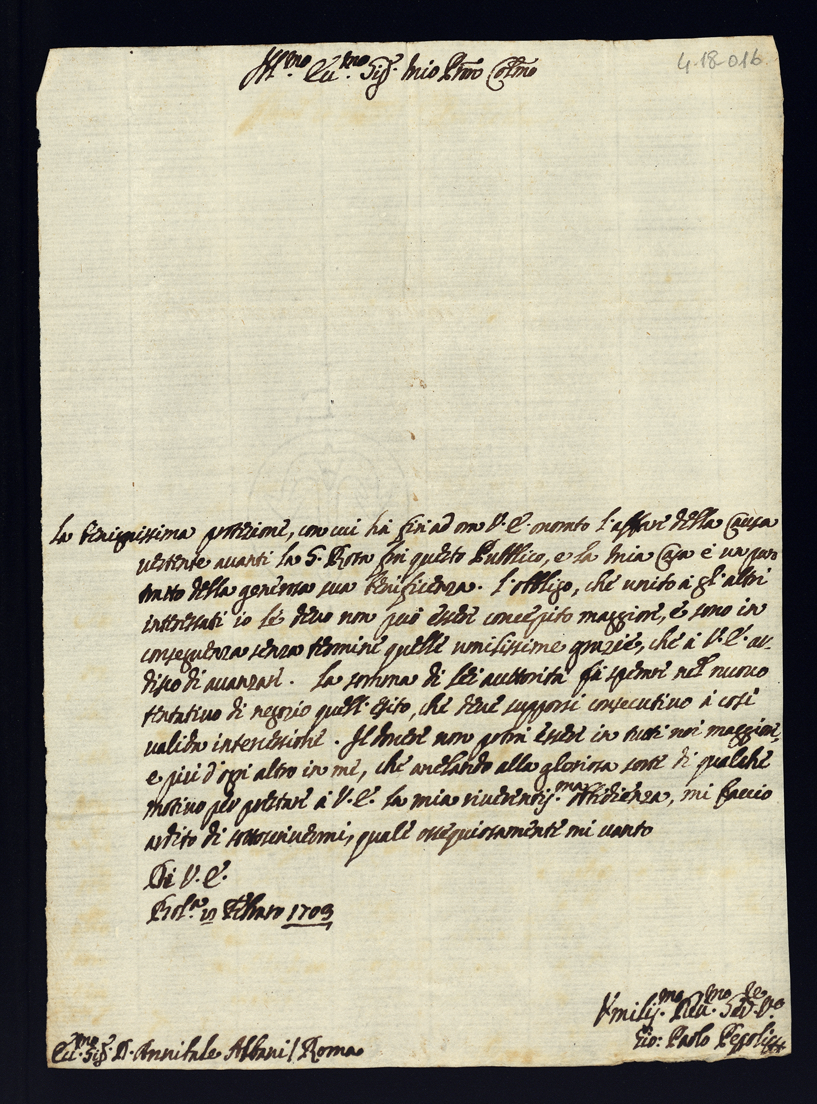 Ill.mo Ecc.mo Sig.r mio Pron Colmo
4-18-016
La benignissima protezione, con cui hà fin ad ora V. E. onorato l'affare della Causa
vertente avanti la S. Rota frà questo Pubblico, e la mia Casa è un puro
tratto della generosa sua benificenza. L'obbligo, che unito à gl'altri
interessati io le devo non può essere concepito maggiore, e sono in
conseguenza senza termine quelle umilissime grazie, che à V. E. ar-
disco di avanzare. La somma di lei auttorità fà sperare nel nuovo
tentativo di negozio quell'esito, che deve supporsi consecutivo à così
valida intercessione. Il dovere non potrà essere in tutti noi maggiore,
e più d'ogni altro in me, che anelando alla gloriosa sorte di qualche
motivo per prestare à V. E. la mia riverentis.ma obbidienza, mi faccio
ardito di sottoscrivermi, quale ossequiosamente mi vanto
Di V. E.
Bol.a Febraro 1703
Umilis.mo Dev.mo Ser.re V.o
Gio: Paolo Pepoli
Ecc.mo Sig.r D. Annibale Albani / Roma